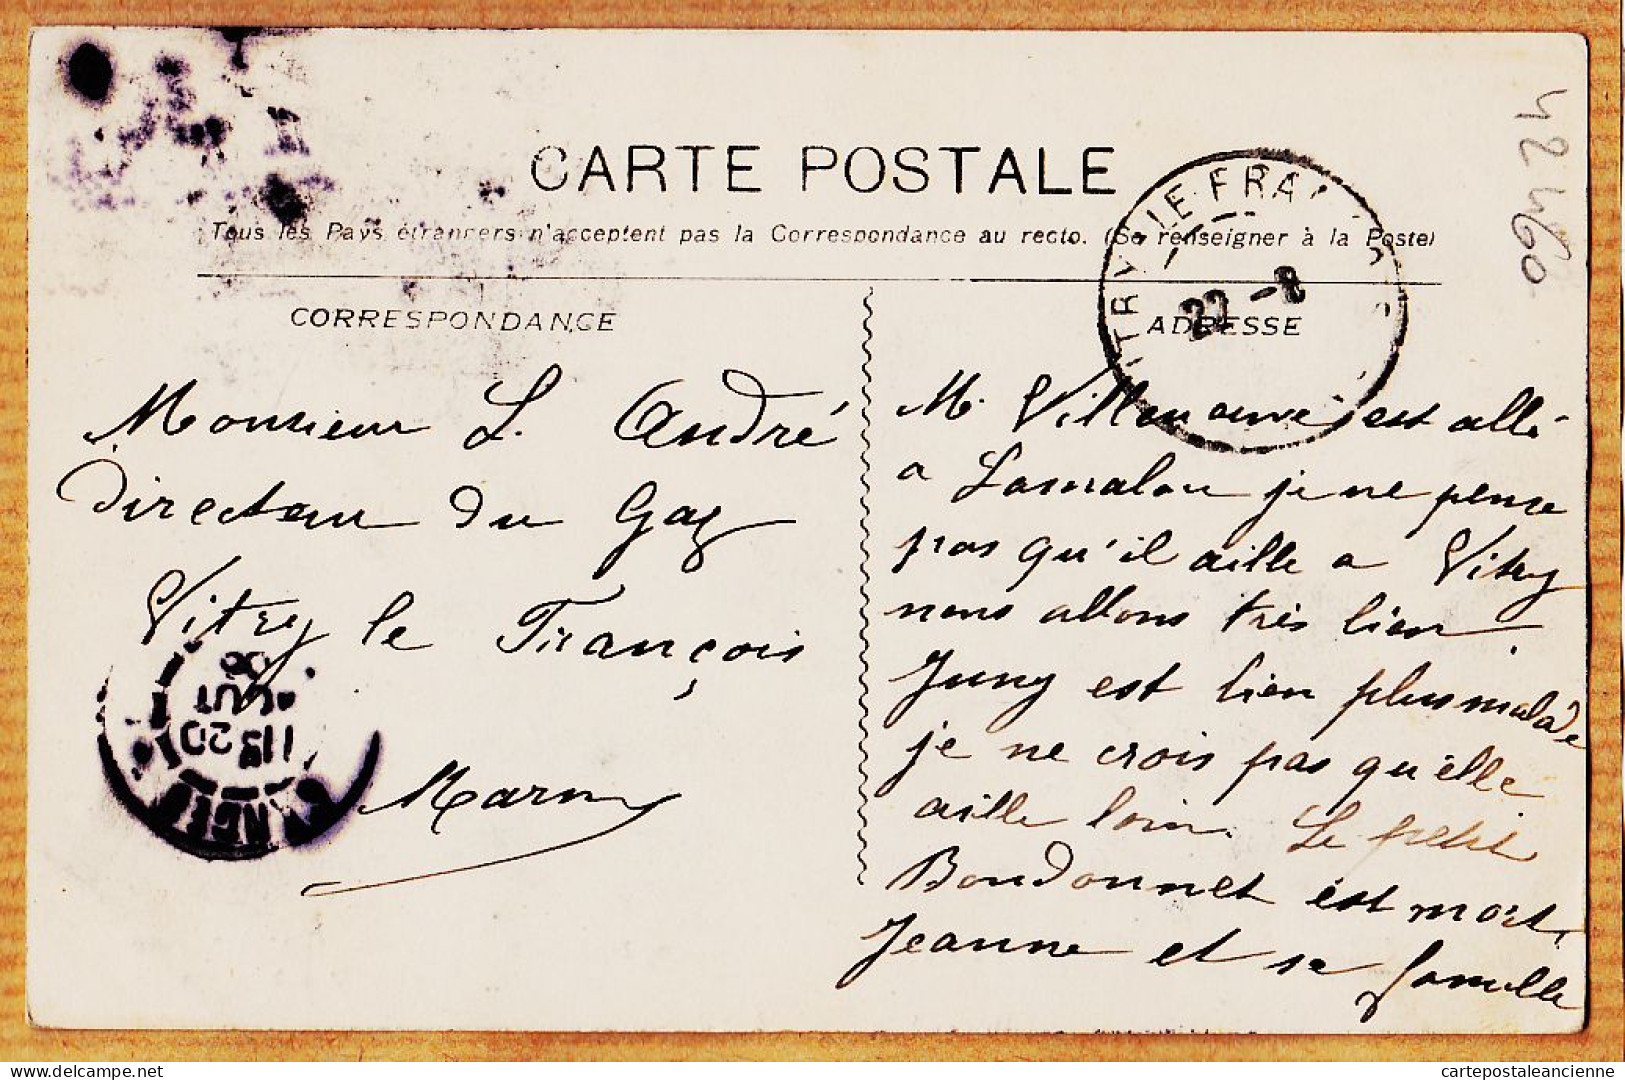 CARTE POSTALE
Tous les Pays étrangers n'acceptent pas la Correspondance au recto. (Se renseigner à la Poste)
CORRESPONDANCE
Monsieur L. André
Directeur du Gaz
Vitry le François
Marne
ADRESSE
M. Villeneuve est allé
a Lamalou je ne pense
pas qu'il aille a Vitry
nous allons très bien.
Juny est bien plus malade
je ne crois pas qu'elle
aille loin. Le petit
Bourdonnet est mort,
Jeanne et sa famille
VITRY-LE-FRAN
22 -8
11 20
AOUT
08
42460
delcampe.net
cartepostaleancienne